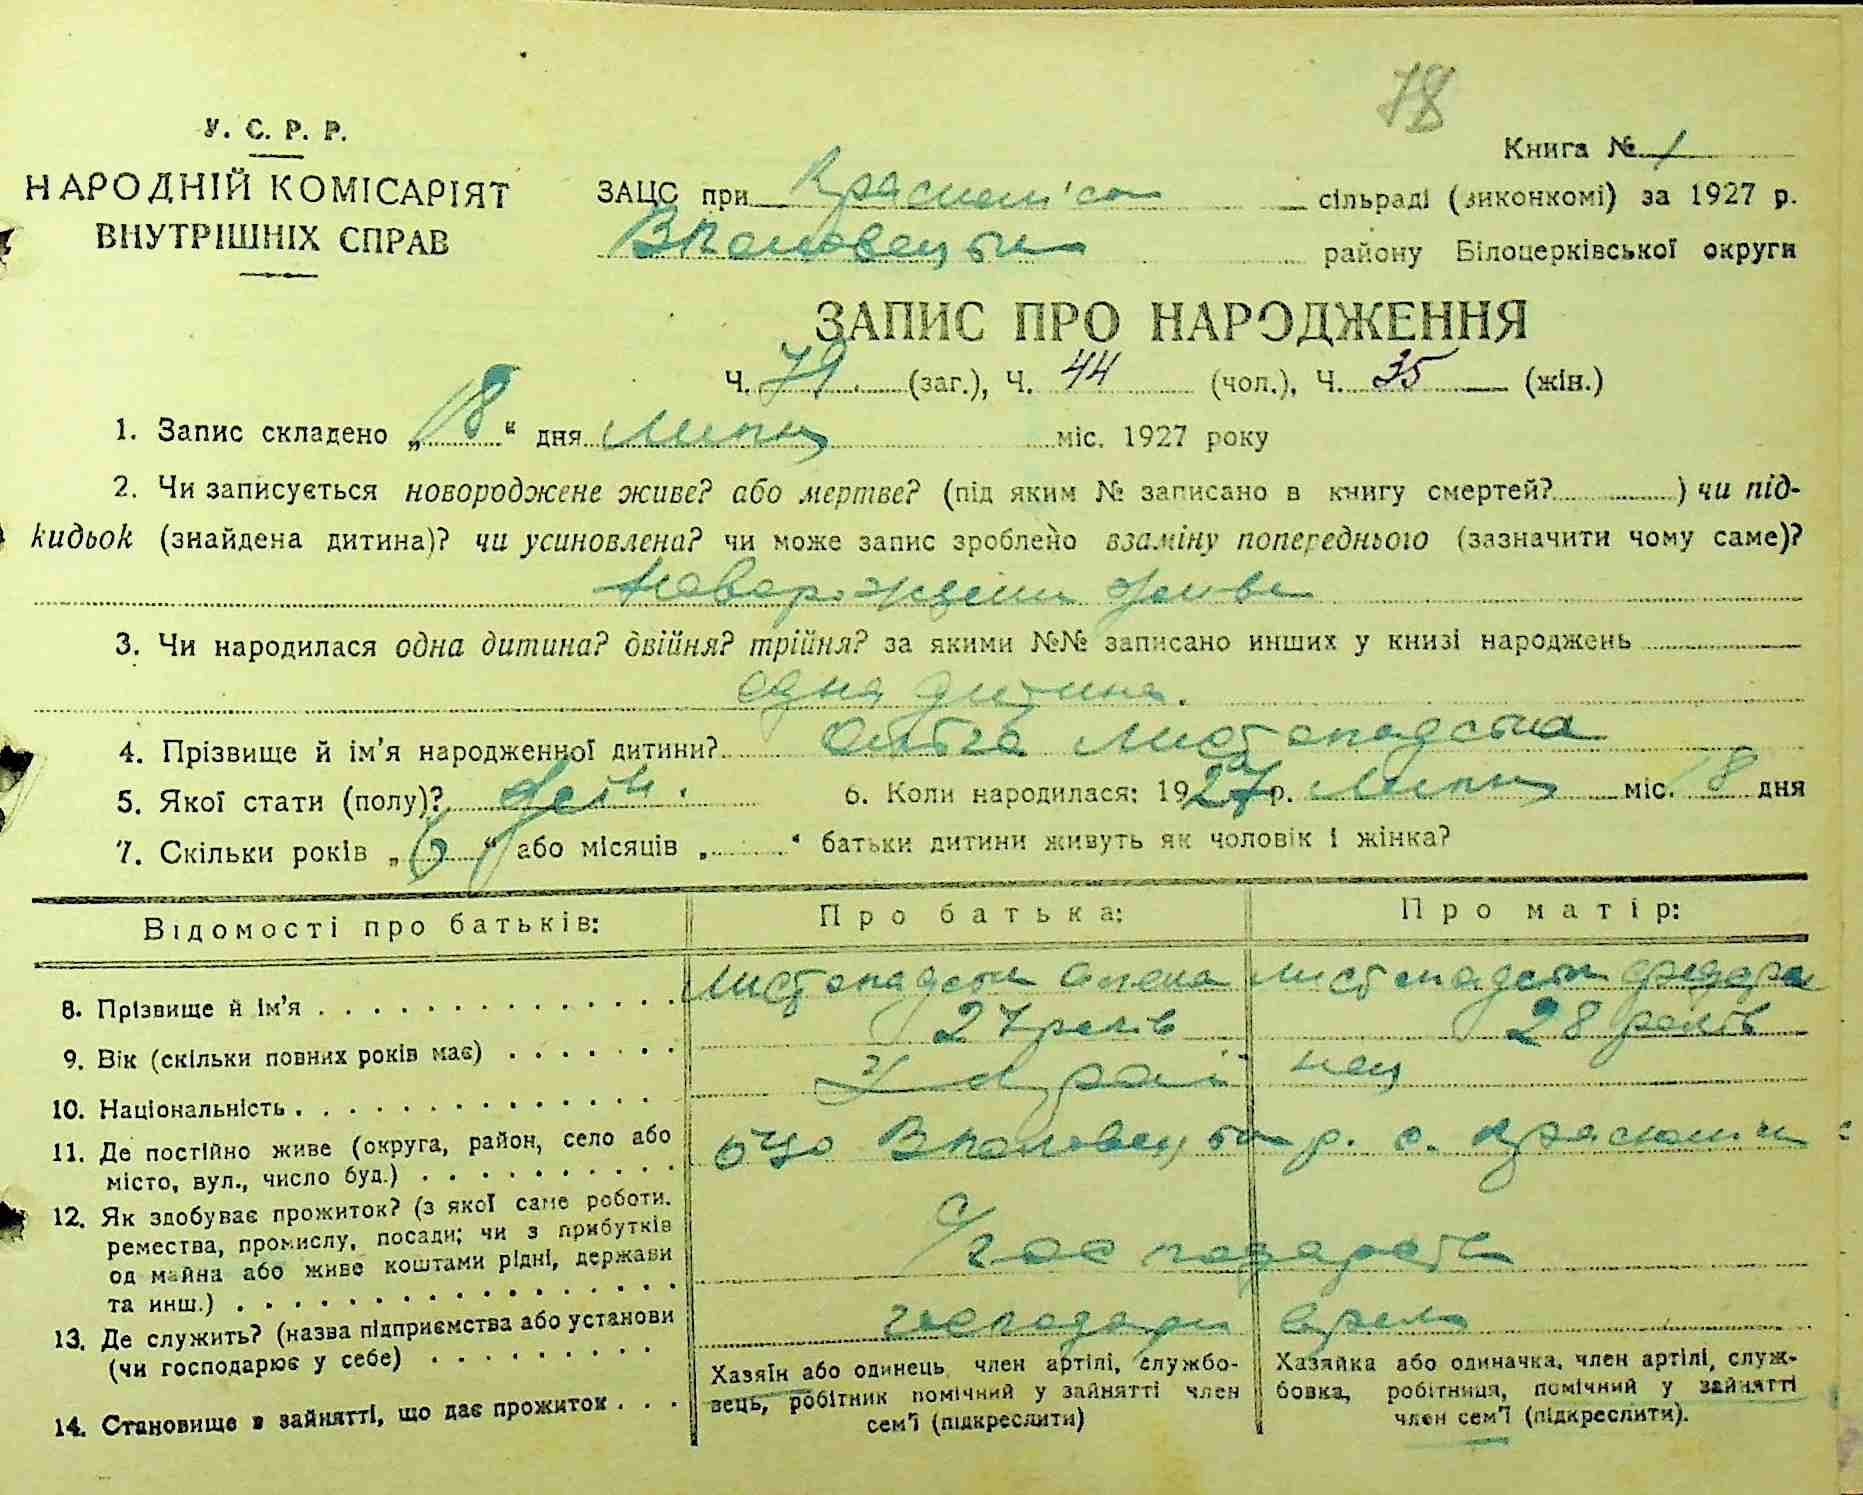 78
У. С. Р. Р.
НАРОДНІЙ КОМІСАРІЯТ
ВНУТРІШНІХ СПРАВ
Книга № 1
ЗАЦС при сільраді (виконкомі) за 1927 р.
району Білоцерківської округи
ЗАПИС ПРО НАРОДЖЕННЯ
Ч. 79 (заг.), Ч. 44 (чол.), Ч. 35 (жін.)
1. Запис складено „18“ дня Липня міс. 1927 року
2. Чи записується новороджене живе? або мертве? (під яким № записано в книгу смертей?) чи під-
кидьок (знайдена дитина)? чи усиновлена? чи може запис зроблено взаміну попереднього (зазначити чому саме)?
живе
3. Чи народилася одна дитина? двійня? трійня? за якими №№ записано инших у книзі народжень
одна дитина.
4. Прізвище й ім'я народженної дитини? Ольга Листопадська
5. Якої стати (полу)? 6. Коли народилася: 1927 р. Липня міс. 8 дня
7. Скільки років „6“ або місяців „ “ батьки дитини живуть як чоловік і жінка?
Відомості про батьків: Про батька: Про матір:
8. Прізвище й ім'я Листопадськ Листопадськ
9. Вік (скільки повних років має) 27 років 28 років
10. Національність Україї нец
11. Де постійно живе (округа, район, село або
місто, вул., число буд.) р. с.
12. Як здобуває прожиток? (з якої саме роботи.
ремества, промислу, посади; чи з прибутків
од майна або живе коштами рідні, держави
та инш.) с/господарств
13. Де служить? (назва підприємства або установи
(чи господарює у себе) господарь
14. Становище в зайнятті, що дає прожиток
Хазяїн або одинець, член артілі, службо-
вець, робітник помічний у зайнятті член
сем'ї (підкреслити)
Хазяйка або одиначка, член артілі, служ-
бовка, робітниця, помічний у зайнятті
член сем'ї (підкреслити).